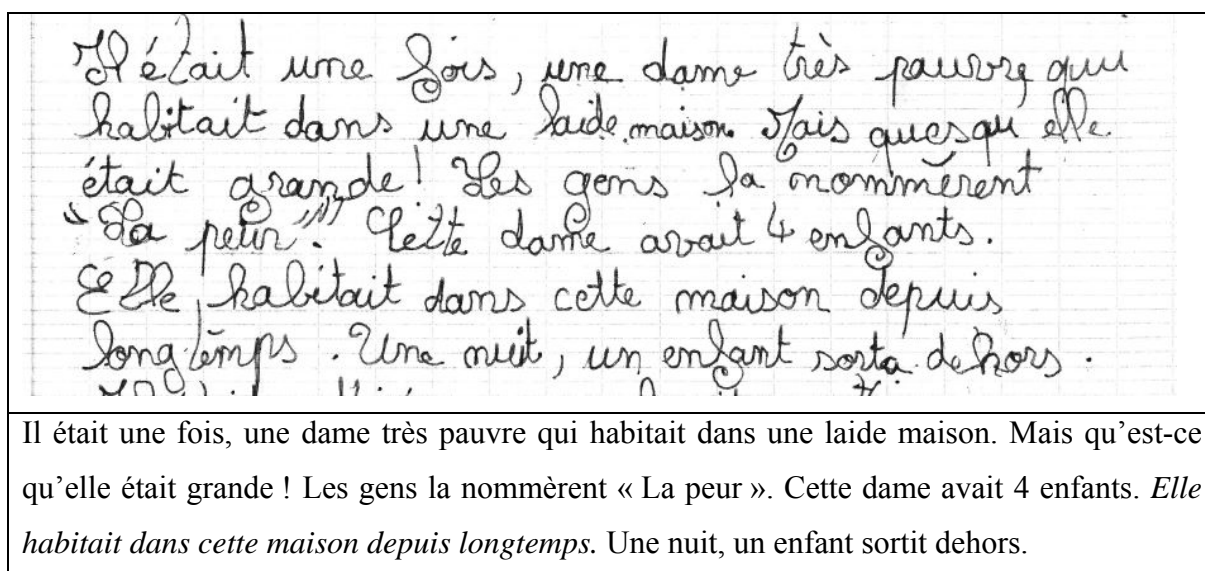 Il était une fois, une dame très pauvre qui
habitait dans une laide maison. Mais quesqu'elle
était grande! Les gens la nommèrent
"La peur". Cette dame avait 4 enfants.
Elle habitait dans cette maison depuis
longtemps. Une nuit, un enfant sorta dehors.
Il était une fois, une dame très pauvre qui habitait dans une laide maison. Mais qu’est-ce
qu’elle était grande ! Les gens la nommèrent « La peur ». Cette dame avait 4 enfants. Elle
habitait dans cette maison depuis longtemps. Une nuit, un enfant sortit dehors.